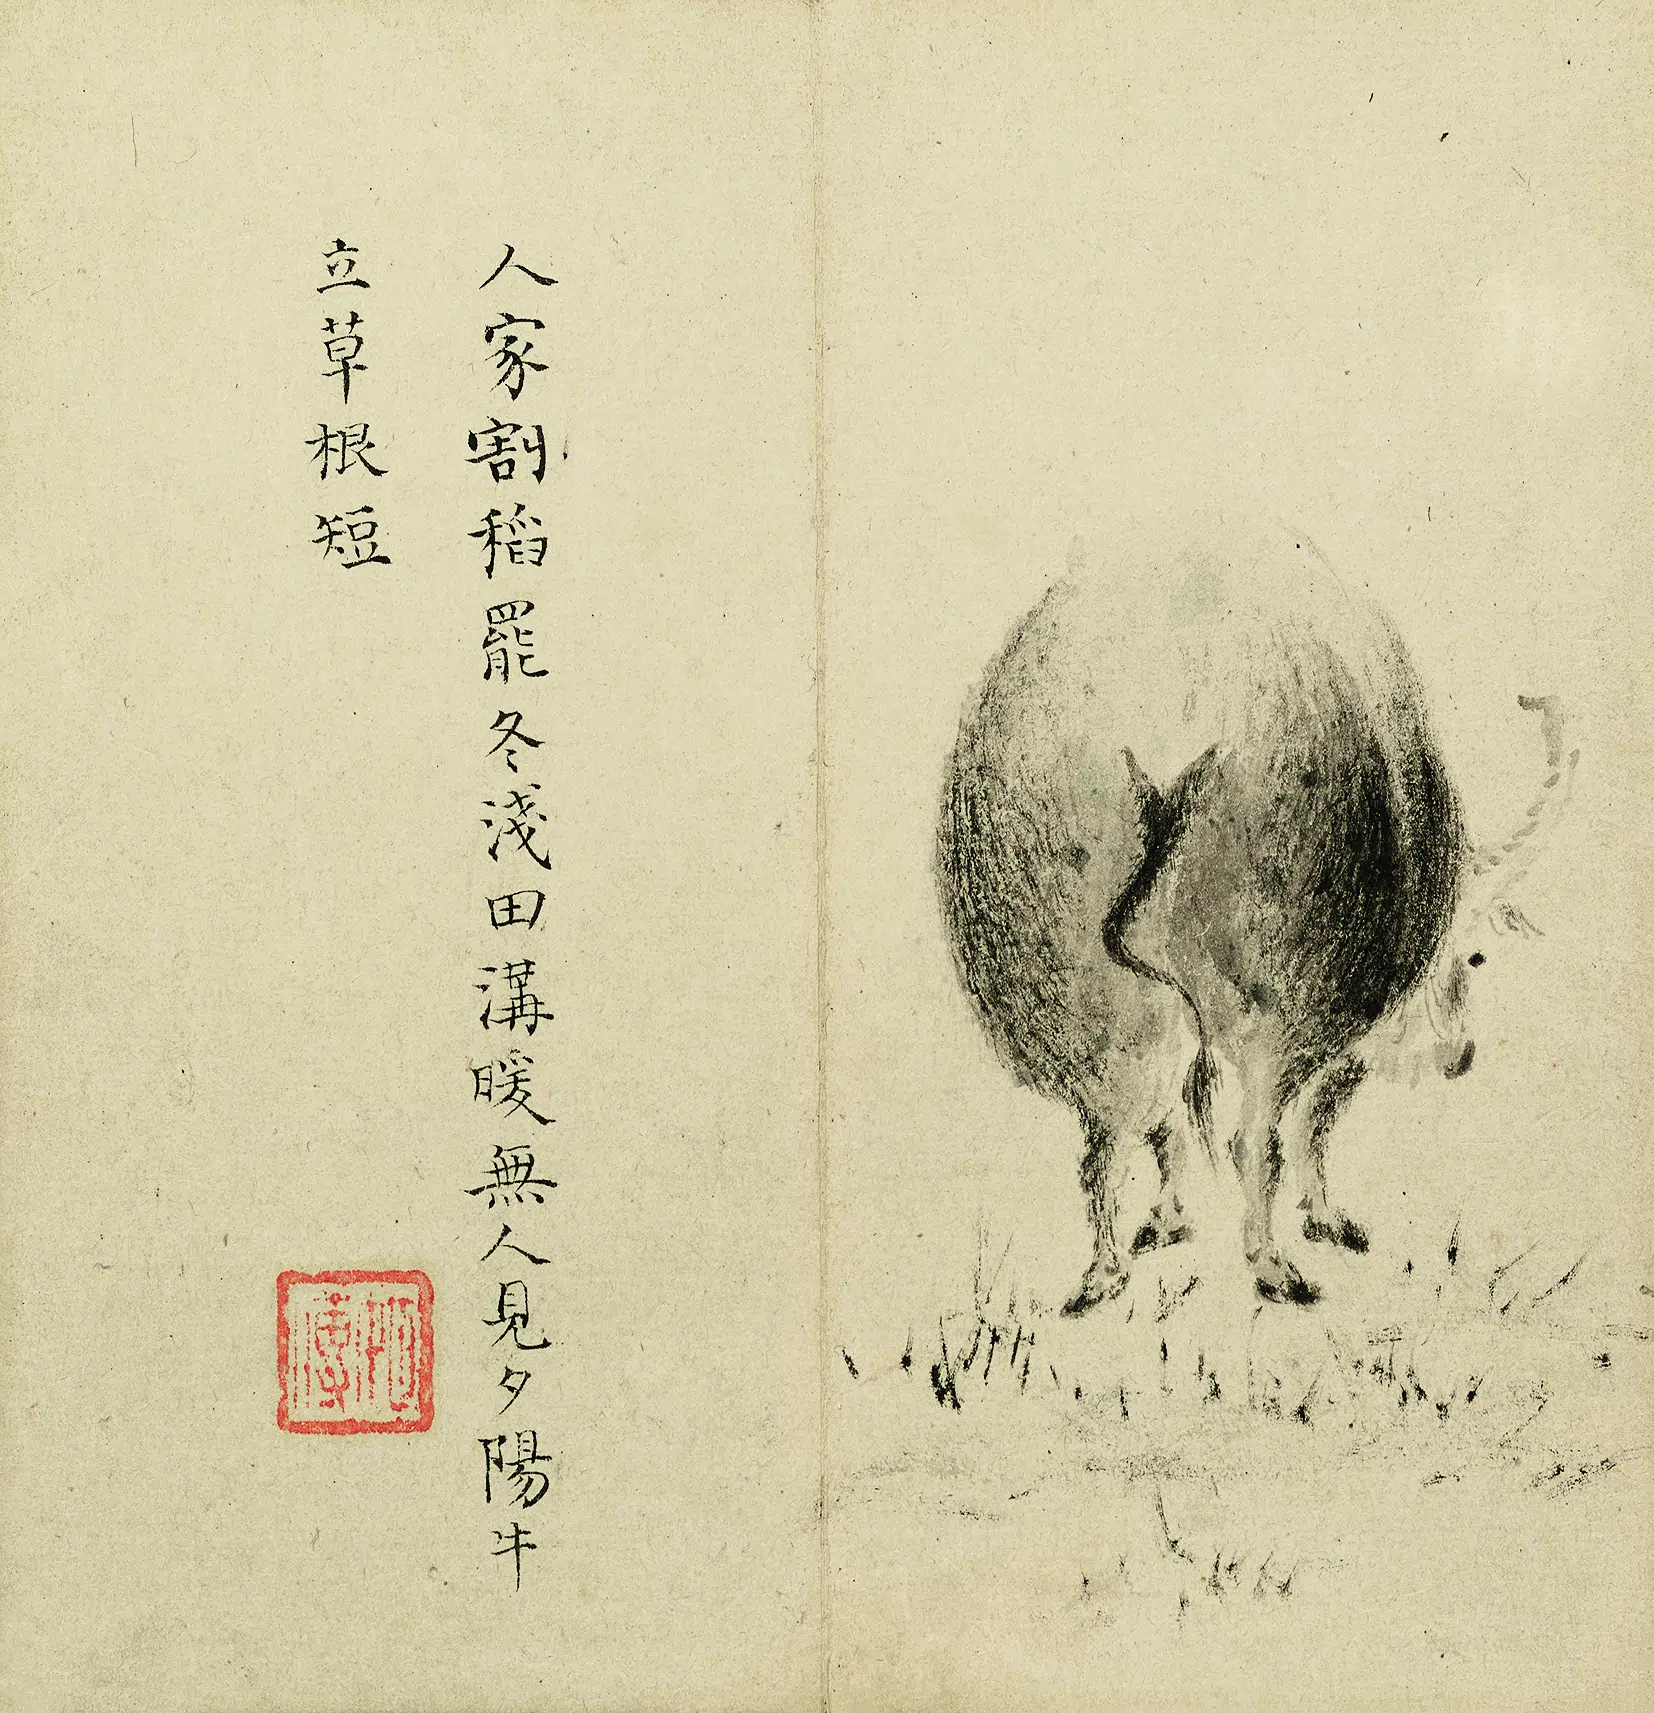 人家割稻罷冬淺田溝暖無人見夕陽牛
立草根短